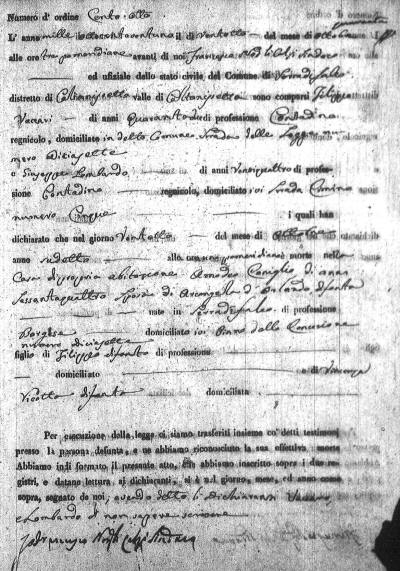 Numero d' ordine Cento otto
L' anno mille ottocentoventuno il dì ventotto del mese di ottobre
alle ore tre pomeridiane avanti di noi Francesco
ed ufiziale dello stato civile del Comune di Serradifalco
distretto di Caltanissetta valle di Caltanissetta sono comparsi Filippo
Vaccari di anni Quaranta di professione Contadino
regnicolo, domiciliato in detto Comune Strada delle nu
mero Diciasette
e Giuseppe Lombardo di anni Ventiquattro di profes-
sione Contadino regnicolo, domiciliato ivi Strada
numero Cinque i quali han
dichiarato che nel giorno Ventotto del mese di Ottobre
anno sudetto alle ore pomeridiane morto nella
Casa di propria abitazione Amodeo Coniglio di anni
Sessantaquattro Sposo di Arcangela d' Orlando
nato in Serradifalco di professione
Borgese domiciliato ivi Piano della Concezione
numero diciasette
figlio di Filippo di professione
domiciliato e di Vincenza
domiciliata
Per esecuzione della legge ci siamo trasferiti insieme co' detti testimoni
presso la persona defunta, e ne abbiamo riconosciuto la sua effettiva morte
Abbiamo indi formato il presente atto, che abbiamo inscritto sopra i due re-
gistri, e datane lettura ai dichiaranti, si è nel giorno, mese, ed anno come
sopra, segnato da noi, avendo detto li dichiaranti Vaccaro
e Lombardo di non sapere scrivere